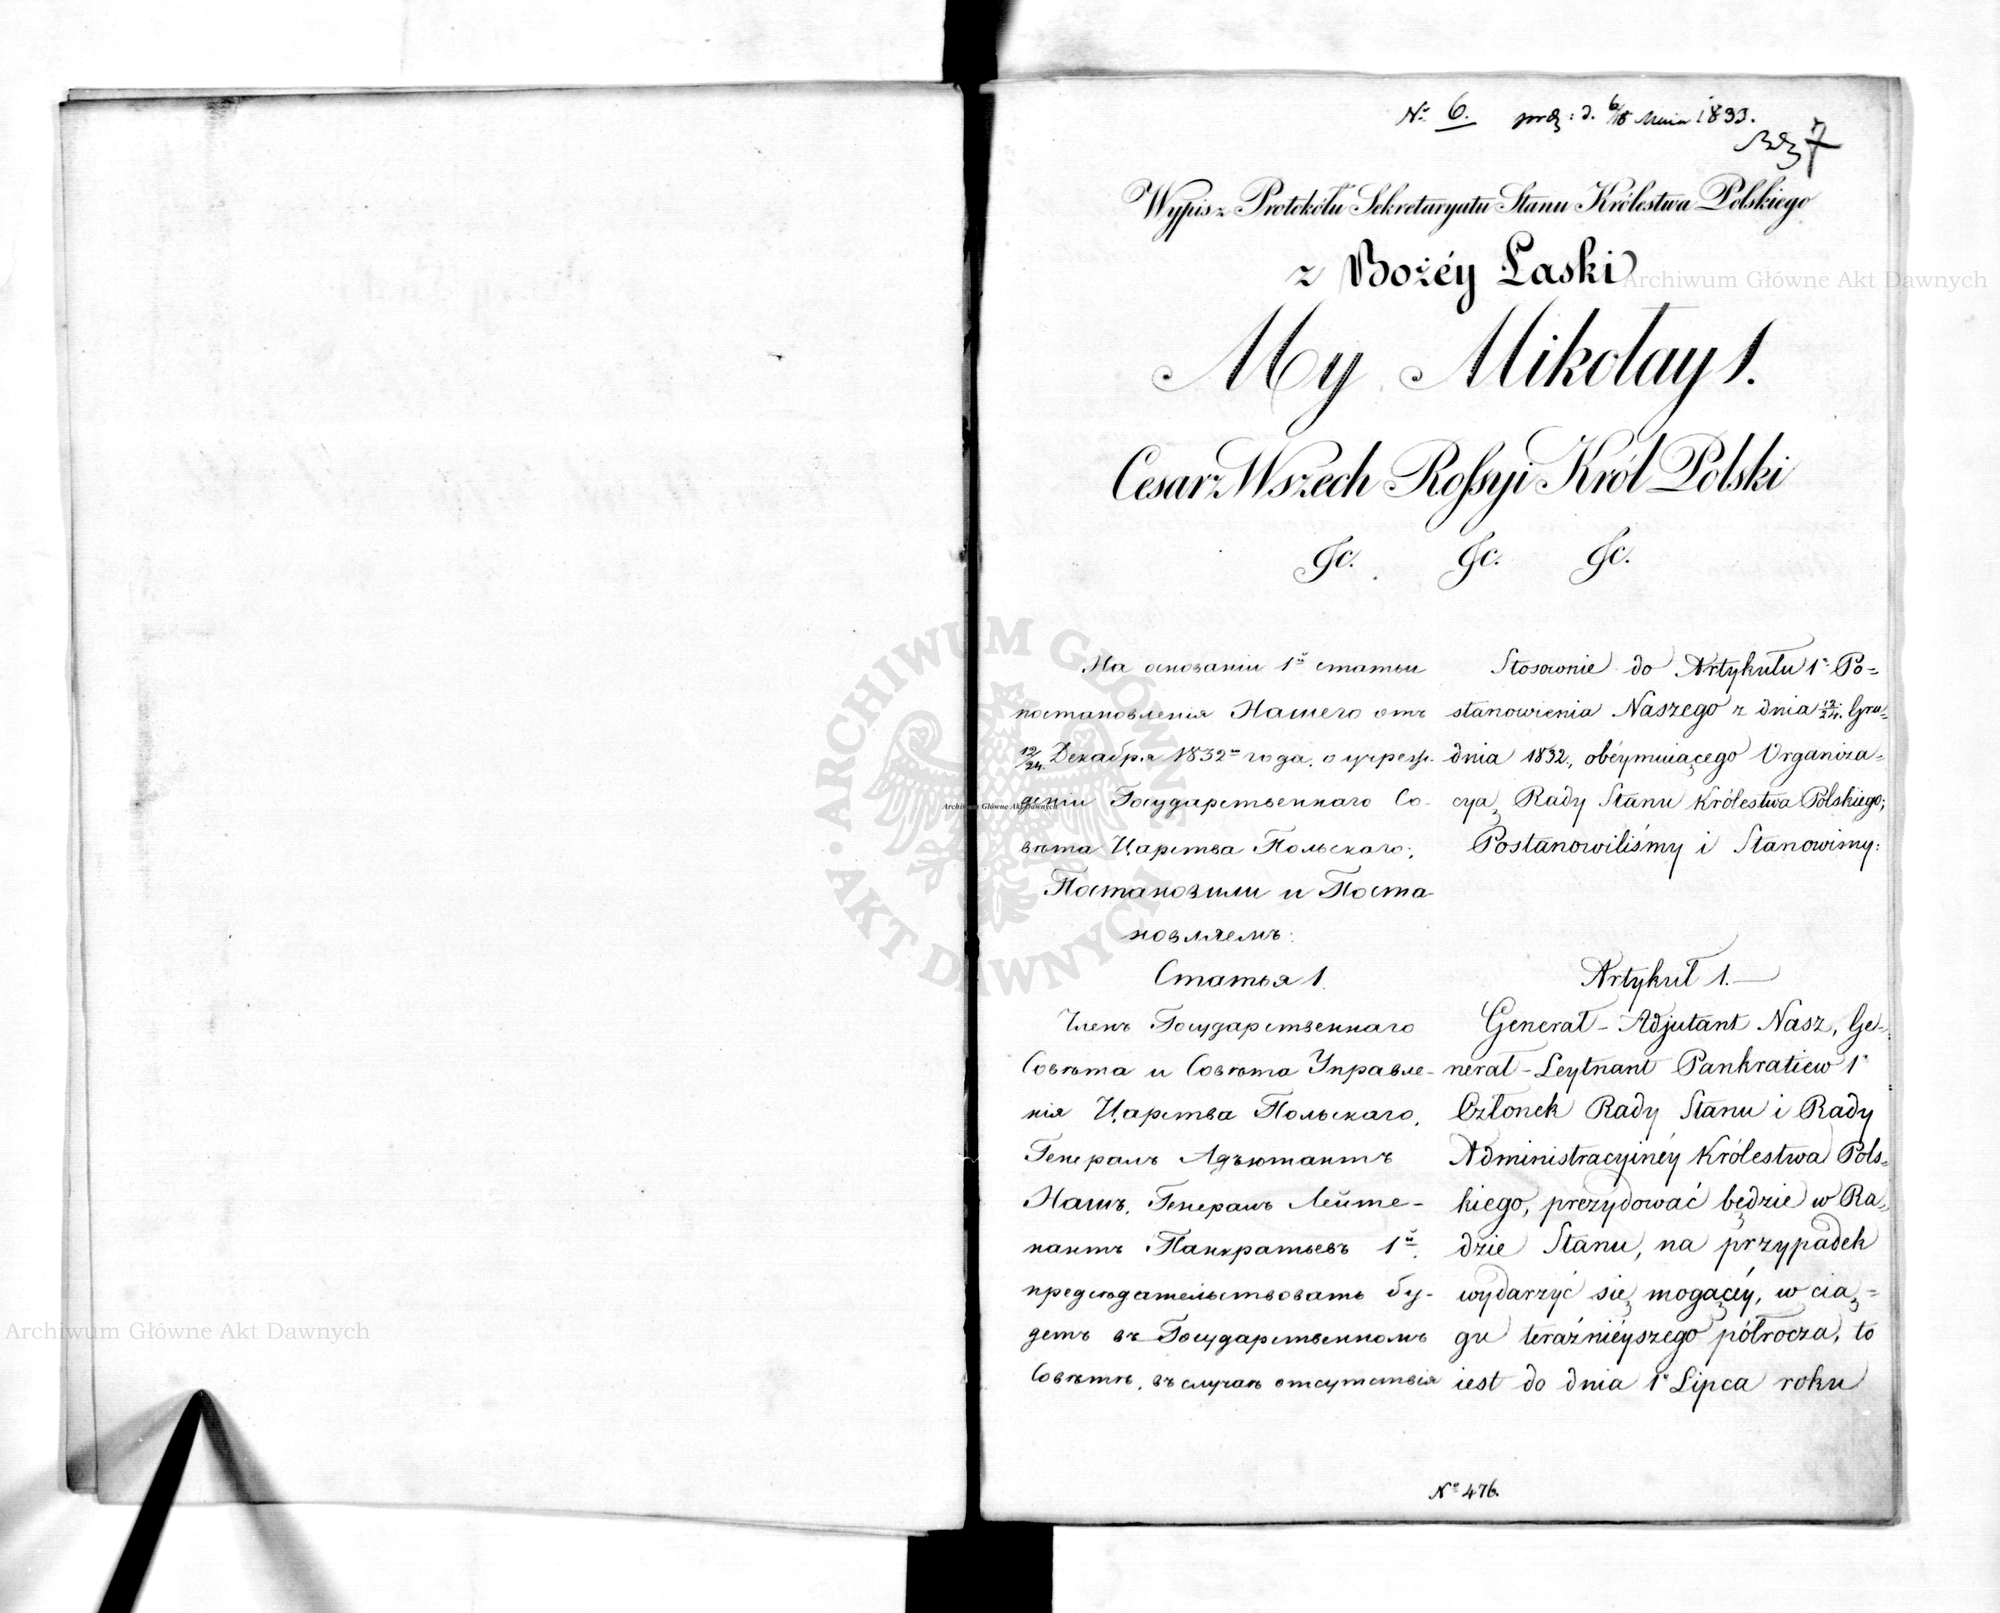 № 6. prez: d. 6/18 Maia 1833.
7
Wypis z Protokółu Sekretaryatu Stanu Królestwa Polskiego
z Bożéy Łaski
My Mikołay I.
Cesarz Wszech Rossyi Król Polski
&c. &c. &c.
На основаніи 1й статьи
постановленія Нашего отъ
12/24 Декабря 1832го года, о учреж-
деніи Государственнаго Со-
вѣта Царства Польскаго;
Постановили и Поста-
новляемъ:
Статья 1.
Членъ Государственнаго
Совѣта и Совѣта Управле-
нія Царства Польскаго,
Генералъ Адъютантъ
Нашъ, Генералъ Лейте-
нантъ Панкратьевъ 1й.
предсѣдательствовать бу-
детъ въ Государственномъ
Совѣтѣ, въ случаѣ отсутствія
Stosownie do Artykułu 1° Po-
stanowienia Naszego z dnia 12/24. Gru-
dnia 1832, obéymuiącego Organiza-
cyą Rady Stanu Królestwa Polskiego;
Postanowiliśmy i Stanowimy:
Artykuł 1.
Generał-Adjutant Nasz, Ge-
nerał-Leytnant Pankratiew 1°
Członek Rady Stanu i Rady
Administracyinéy Królestwa Pols-
kiego, prezydować będzie w Ra-
dzie Stanu, na przypadek
wydarzyć się mogącéy, w cią-
gu teraźnieyszego półrocza, to
iest do dnia 1° Lipca roku
№ 476.
Archiwum Główne Akt Dawnych
Archiwum Główne Akt Dawnych
Archiwum Główne Akt Dawnych
ARCHIWUM GŁÓWNE AKT DAWNYCH